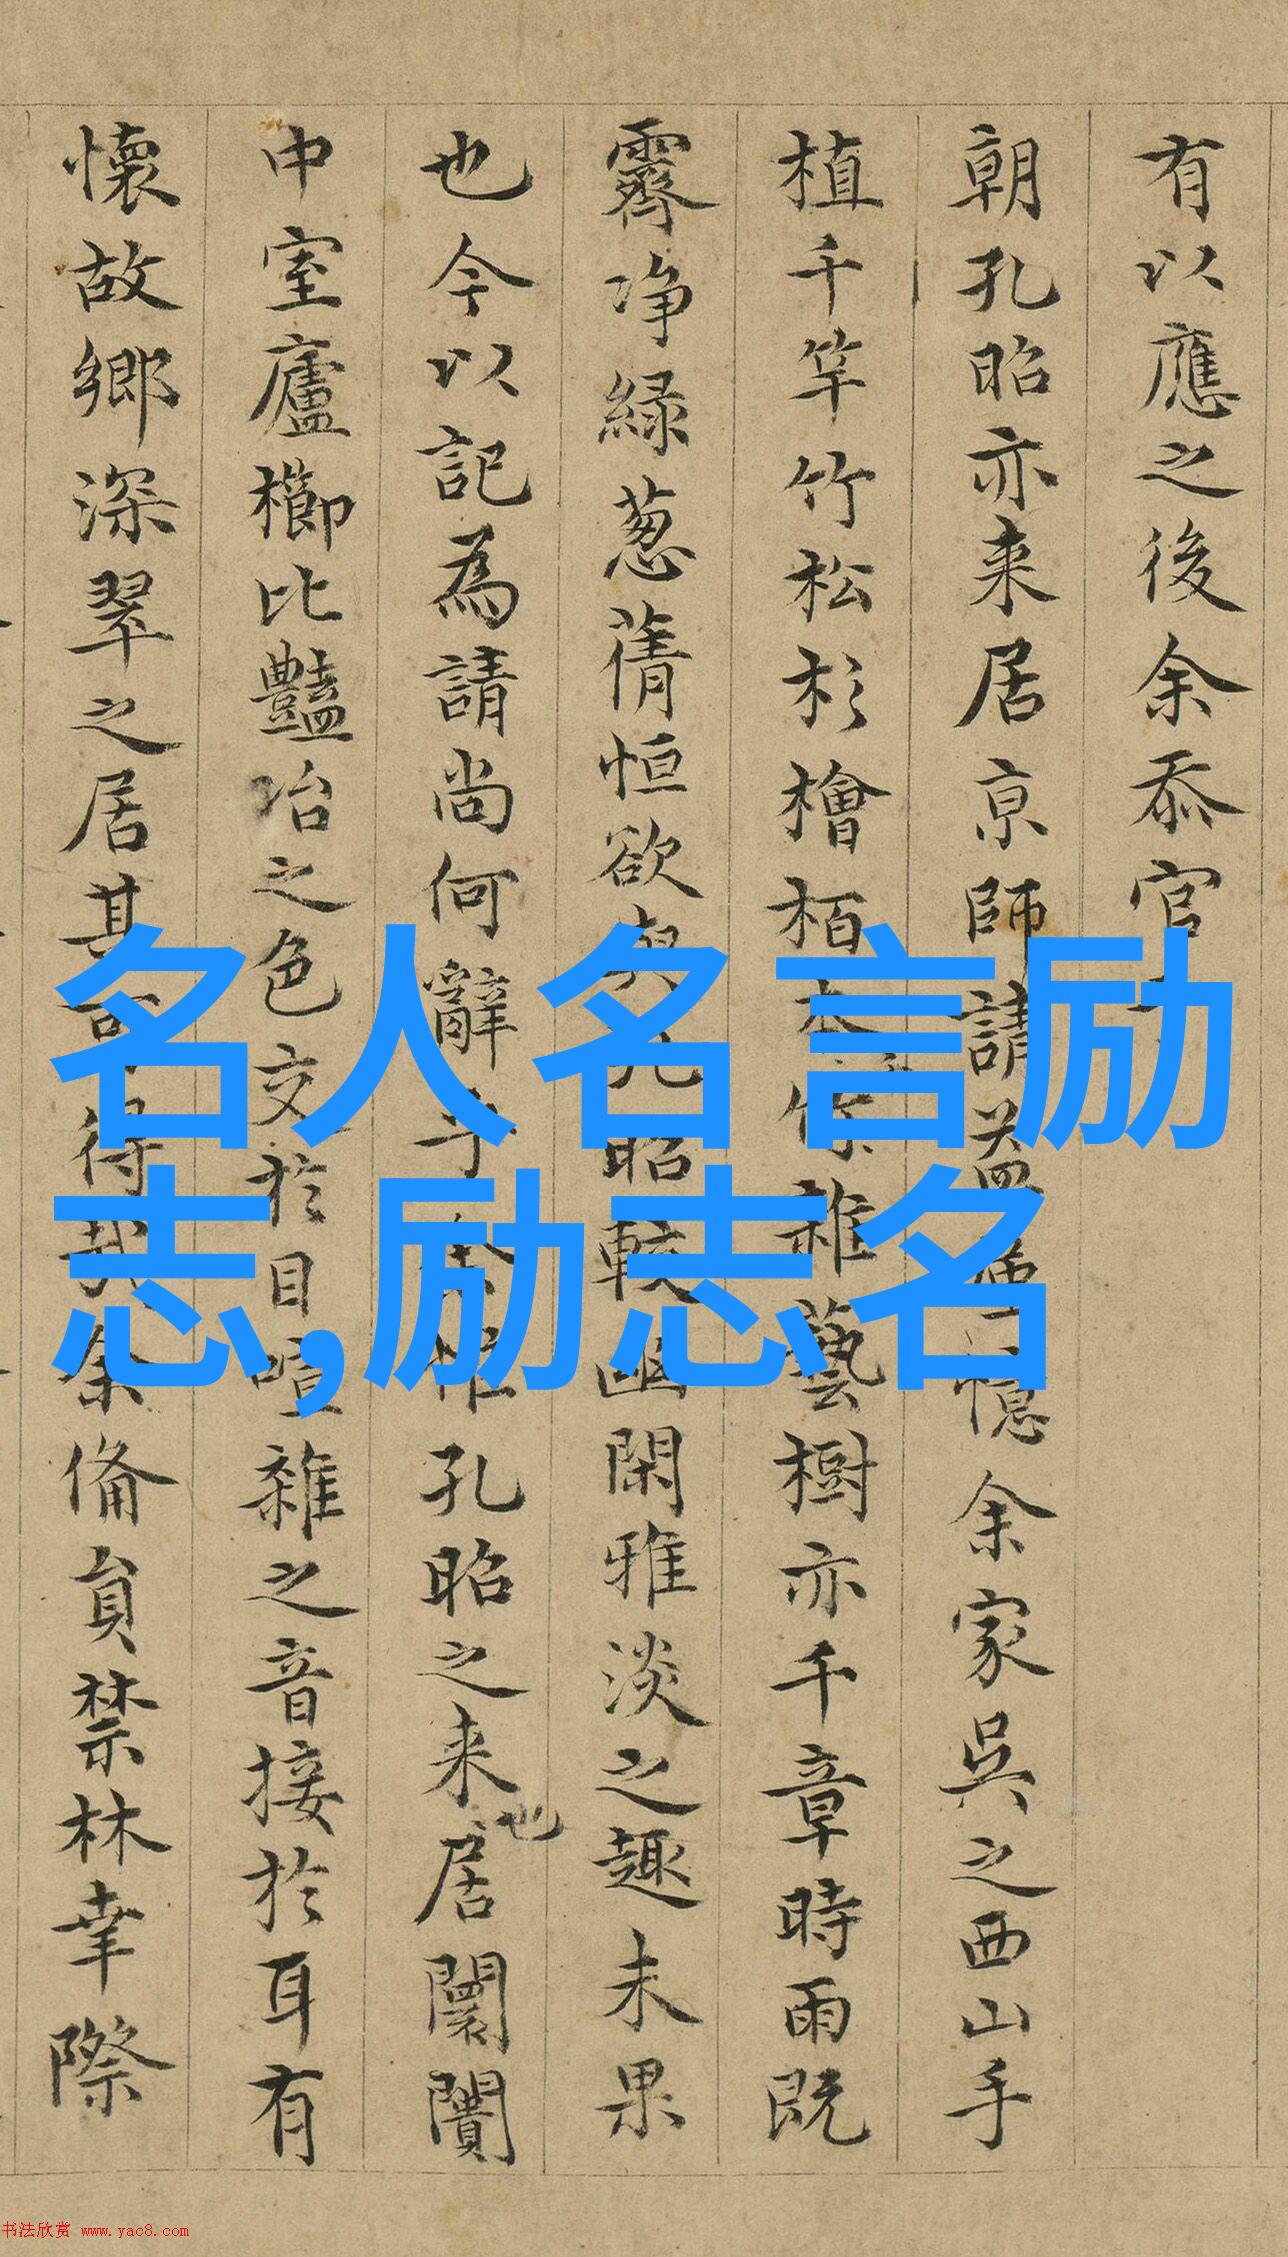 有以應之後余忝官
朝孔昭亦来居京師請益齋憶余家吳之西山手
植千竿竹松杉檜栢雜藝樹亦千章時雨既
霽净綠葱蒨恒欲與孔昭較幽閑雅淡之趣未果
也今以記為請尚何辭予惟孔昭之来居闤闠
也
中室廬櫛比豔冶之色交於目喧雜之音接於耳有
懷故鄉深翠之居其可得哉余備員禁林幸際
名人名言励
志,励志名
书法欣赏 www.yac8.com